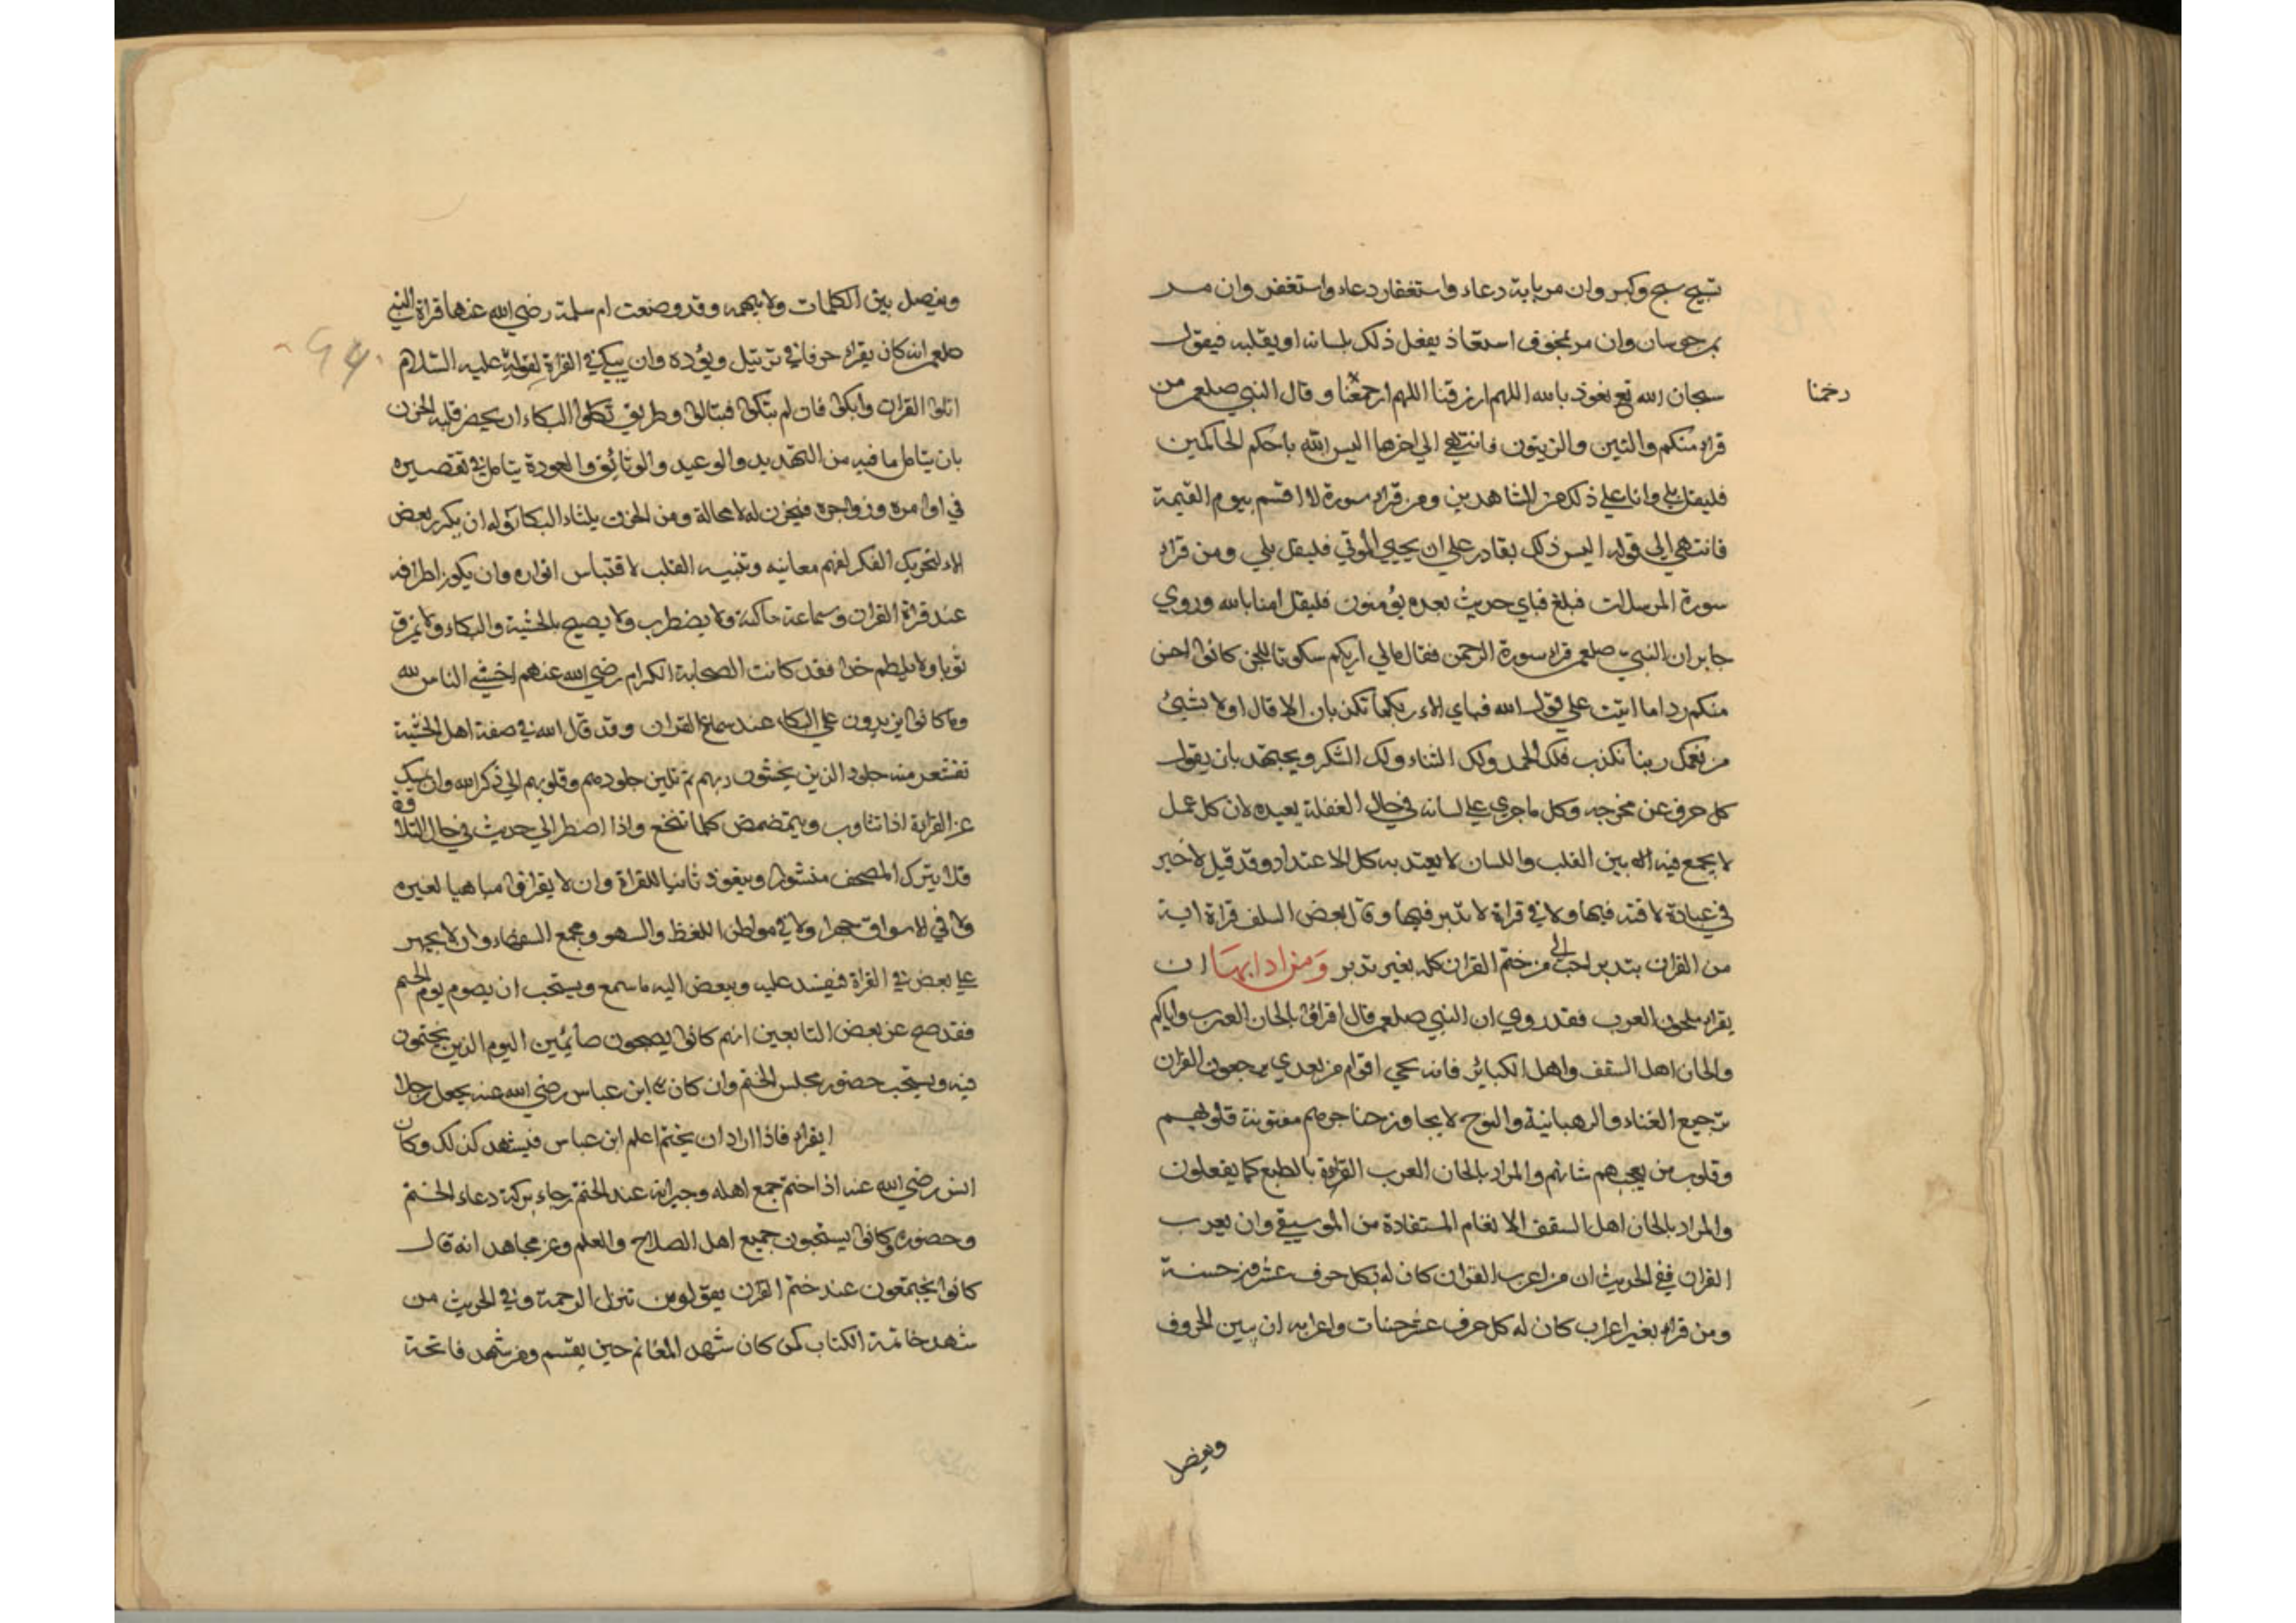 تسبيح سبح وكبر وان مر باية دعاء واستغفار دعاء واستغفر وان مر
بمرجو سان وان مر بمخوف استعاذ يفعل ذلك بلسانه او بقلبه فيقول
سبحان الله نعوذ بالله اللهم ارزقنا اللهم ارحمنا وقال النبي صلعم من
رحمنا
قراء منكم والتين والزيتون فانتهى الي اخرها اليس الله باحكم الحاكمين
فليقل بلي وانا علي ذلك من الشاهدين ومن قراء سورة لا اقسم بيوم القيمة
فانتهى الى قوله اليس ذلك بقادر علي ان يحيي الموتي فليقل بلي ومن قراء
سورة المرسلات فبلغ فباي حديث بعده يؤمنون فليقل امنا بالله وروي
جابر ان النبي صلعم قراء سورة الرحمن فقال مالي اريكم سكوتا للجن كانوا احسن
منكم ردا ما اتيت علي قول الله فباي الاء ربكما تكذبان الا قالوا ولا بشيئ
من نعمك ربنا نكذب فلك الحمد ولك الثناء ولك الشكر ويجتهد بان يقول
كل حرف عن مخرجه وكل ما جري علي لسانه في حال الغفلة يعيده لان كل عمل
لا يجمع فيه بين القلب واللسان لا يعتد به كل الاعتداد وقد قيل لا خير
في عبادة لا فقه فيها ولا في قراة لا تدبر فيها وقال بعض السلف قراة اية
من القران بتدبر احب الي من ختم القران كله بغير تدبر ومن ادابها ان
يقراء بلحون العرب فقد روي ان النبي صلعم قال اقراؤا بالحان العرب واياكم
والحان اهل السقف واهل الكبائر فانه يجي اقوام من بعدي يرجعون القران
ترجيع الغناء والرهبانية والنوح لا يجاوز حناجرهم مفتونة قلوبهم
وقلوب من يعجبهم شانهم والمراد بالحان العرب القراءة بالطبع كما يفعلون
والمراد بالحان اهل السقف الانغام المستفادة من الموسيقي وان يعرب
القران ففي الحديث ان من اعرب القران كان له بكل حرف عشرون حسنة
ومن قراء بغير اعراب كان له كل حرف عشر حسنات واعرابه ان يبين الحروف
ويفصل
ويفصل بين الكلمات ولا يبهمه وقد وصفت ام سلمة رضي الله عنها قراة النبي
صلعم انه كان يقراء حرفا في ترتيل ويؤده وان يبكي في القراة لقوله عليه السلام
اتلوا القران وابكوا فان لم تبكوا فتباكوا وطريق البكاء ان يحضر قلبه الحزن
بان يتامل ما فيه من التهديد والوعيد والوثائق والعهودة يتامل في تقصيره
في اوامره وزواجره فيحزن له لا محالة ومن الحزن ينشاء البكاء وله ان يكرر بعض
الاء لتحريك الفكر لفهم معانيه وتنبيه القلب لاقتباس انواره وان يكون اطرافه
عند قراة القران وسماعه ساكنة ولا يضطرب ولا يصيح بالخشية والبكاء ولا يمزق
ثوبا ولا يلطم خدا فقد كانت الصحابة الكرام رضي الله عنهم اخشي الناس لله
وما كانوا يزيدون علي البكاء عند سماع القران وقد قال الله في صفة اهل الخشية
تقشعر منه جلود الذين يخشون ربهم ثم تلين جلودهم وقلوبهم الي ذكر الله وان يمسك
عن القراءة اذا تثاوب ويتمضمض كلما تنخع واذا اضطر الي حديث في حال التلاوة
فلا يترك المصحف منشورا ويتعوذ ثانيا للقراة وان لا يقرا مباهيا لغيره
ولا في الاسواق جهرا ولا في مواطن اللغط والسهو ومجمع السفهاء وان لا يجهر
علي بعض في القراة فيفسد عليه وبعض اليه ما سمع ويستحب ان يصوم يوم الختم
فقد صح عن بعض التابعين انهم كانوا يصبحون صائمين اليوم الذين يختمون
فيه ويستحب حضور مجلس الختم وان كان ابن عباس رضي الله عنه يجعل رجلا
يقراء فاذا اراد ان يختم اعلم ابن عباس فيشهد كذلك وكان
انس رضي الله عنه اذا ختم جمع اهله وجيرانه عند الختم رجاء بركة دعاء الختم
وحضوره وكانوا يستحبون جميع اهل الصلاح والعلم وعن مجاهد انه قال
كانوا يجتمعون عند ختم القران يقولون تنزل الرحمة وفي الحديث من
شهد خاتمة الكتاب كمن كان شهد المغانم حين يقسم ومن شهد فاتحة